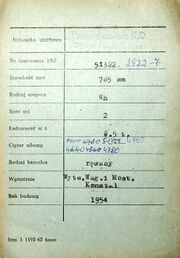 Jednostka służbowa
Nr inwentarzowy PKP 51582. 2622-7
Szerokość toru 785 mm
Rodzaj wagonu Wn
Ilość osi 2
Ładowność w t. 8.5 t.
Ciężar własny
4840 4840 4780
Rodzaj hamulca ręczny
Wytwórnia Wytw.Wag.i Most.
Konstal
Rok budowy 1954